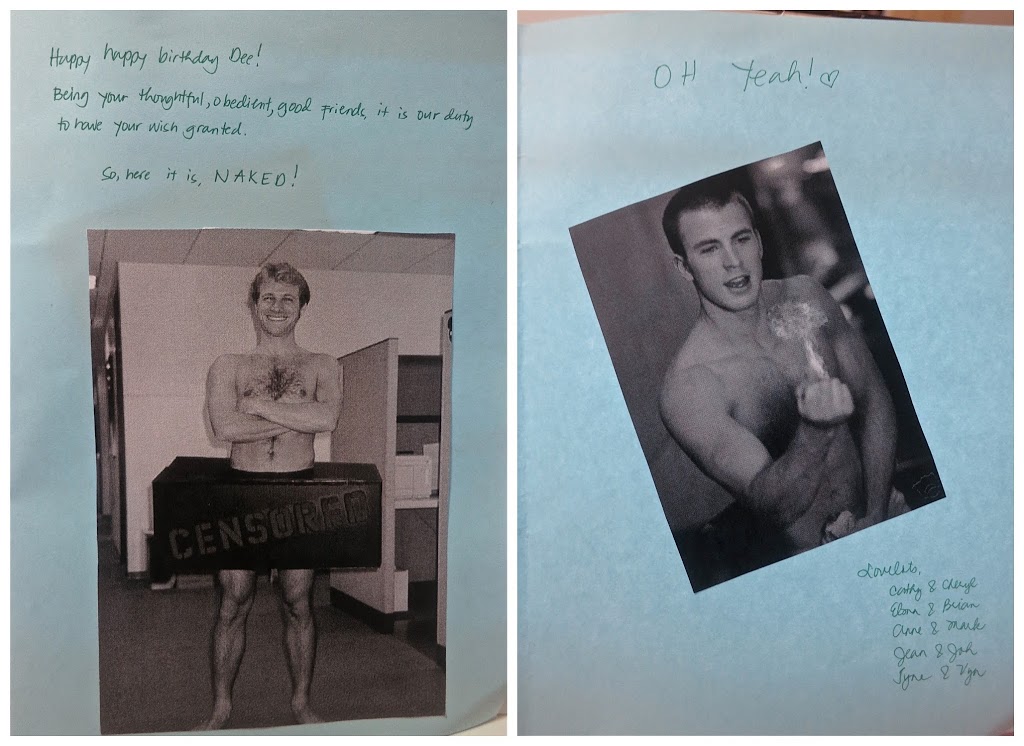 Happy happy birthday Dee!
Being your thoughtful, obedient, good friends, it is our duty
to have your wish granted.
So, here it is, NAKED!
CENSORED
OH Yeah! ♡
Lovelots,
Cathy & Cheryl
Elona & Brian
Anne & Mark
Jean & Joh
Jyne & Vgn